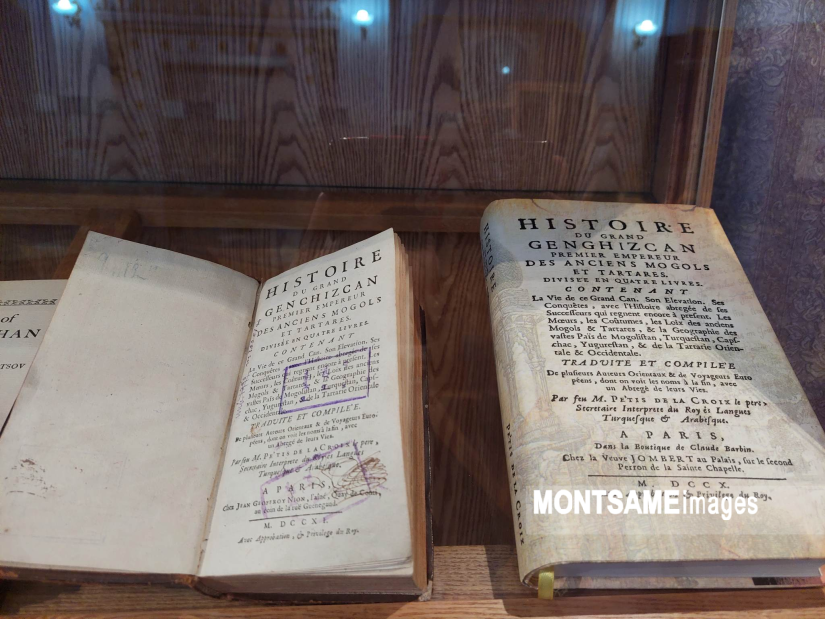 of
HAN
TSOV
HISTOIRE
DU GRAND
GENCHIZCAN
PREMIER EMPEREUR
DES ANCIENS MOGOLS
ET TARTARES.
DIVISÉE EN QUATRE LIVRES.
CONTENANT
La Vie de ce Grand Can. Son Elevation. Ses
Conquêtes, avec l'Histoire abregée de ses
Successeurs qui regnent encore à present. Les
Mœurs, les Coûtumes, les Loix des anciens
Mogols & Tartares, & la Geographie des
vastes Païs de Mogolistan, Turquestan, Capf-
chac, Yugurestan, & de la Tartarie Orientale
& Occidentale.
TRADUITE ET COMPILÉE
De plusieurs Auteurs Orientaux & de Voyageurs Euro-
péens, dont on voit les noms à la fin, avec
un Abregé de leurs Vies.
Par feu M. PETIS DE LA CROIX le pere,
Secretaire Interprete du Roy és Langues
Turquesque & Arabesque.
A PARIS,
Chez JEAN GEOFFROY NION, l'aîné, Quay de
au coin de la ruë Guenegaud.
M. DCCXI.
Avec Approbation, & Privilege du Roy.
HISTOIRE
PETIS DE LA CROIX
HISTOIRE
DU GRAND
GENGHIZCAN
PREMIER EMPEREUR
DES ANCIENS MOGOLS
ET TARTARES.
DIVISÉE EN QUATRE LIVRES.
CONTENANT
La Vie de ce Grand Can. Son Elevation. Ses
Conquêtes, avec l'Histoire abregée de ses
Successeurs qui regnent encore à present. Les
Mœurs, les Coûtumes, les Loix des anciens
Mogols & Tartares, & la Geographie des
vastes Païs de Mogolistan, Turquestan, Capf-
chac, Yugurestan, & de la Tartarie Orien-
tale & Occidentale.
TRADUITE ET COMPILÉE
De plusieurs Auteurs Orientaux & de Voyageurs Euro
péens, dont on voit les noms à la fin, avec
un Abregé de leurs Vies.
Par feu M. PETIS DE LA CROIX le pere,
Secretaire Interprete du Roy és Langues
Turquesque & Arabesque.
A PARIS,
Dans la Boutique de Claude Barbin.
Chez la Veuve JOMBERT au Palais, sur le second
Perron de la Sainte Chapelle.
M. DCCX.
& Privilege du Roy.
MONTSAMEimages